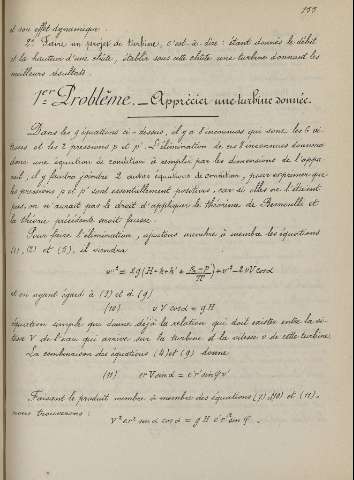 155
et son effet dynamique.
2° Faire un projet de turbine, c'est-à-dire: étant donnés le débit
et la hauteur d'une chûte, établir sous cette chûte une turbine donnant les
meilleurs résultats.
1er Problême. — Apprécier une turbine donnée.
Dans les 9 équations ci-dessus, il y a inconnues qui sont les vi-
tesses et les 2 pressions p et p'. L'élimination de ces inconnues donnera
donc une équation de condition à remplir par les dimensions de l'appa-
reil, il y faudra joindre 2 autres équations de condition, pour exprimer que
les pressions p et p' sont essentiellement positives, car si elles ne l'étaient
pas, on n'aurait pas le droit d'appliquer le théorème de Bernoulli et
la théorie précédente serait fausse.
Pour faire l'élimination, ajoutons membre à membre les équations
(1), (2) et (5), il viendra
= 2g (H - h + h' + ) + - 2vV cos α
et en ayant égard à (3) et à (9)
(10) v V cos α = g H
équation simple qui donne déjà la relation qui doit exister entre la vi-
tesse V de l'eau qui arrive sur la turbine et la vitesse v de cette turbine.
La combinaison des équations (4) et (9) donne
(11) er V sin α = e'r' sin φ v'
Faisant le produit membre à membre des équations (7), (10) et (11),
nous trouverons:
V² er² sin α cos α = g H e'r'² sin φ.